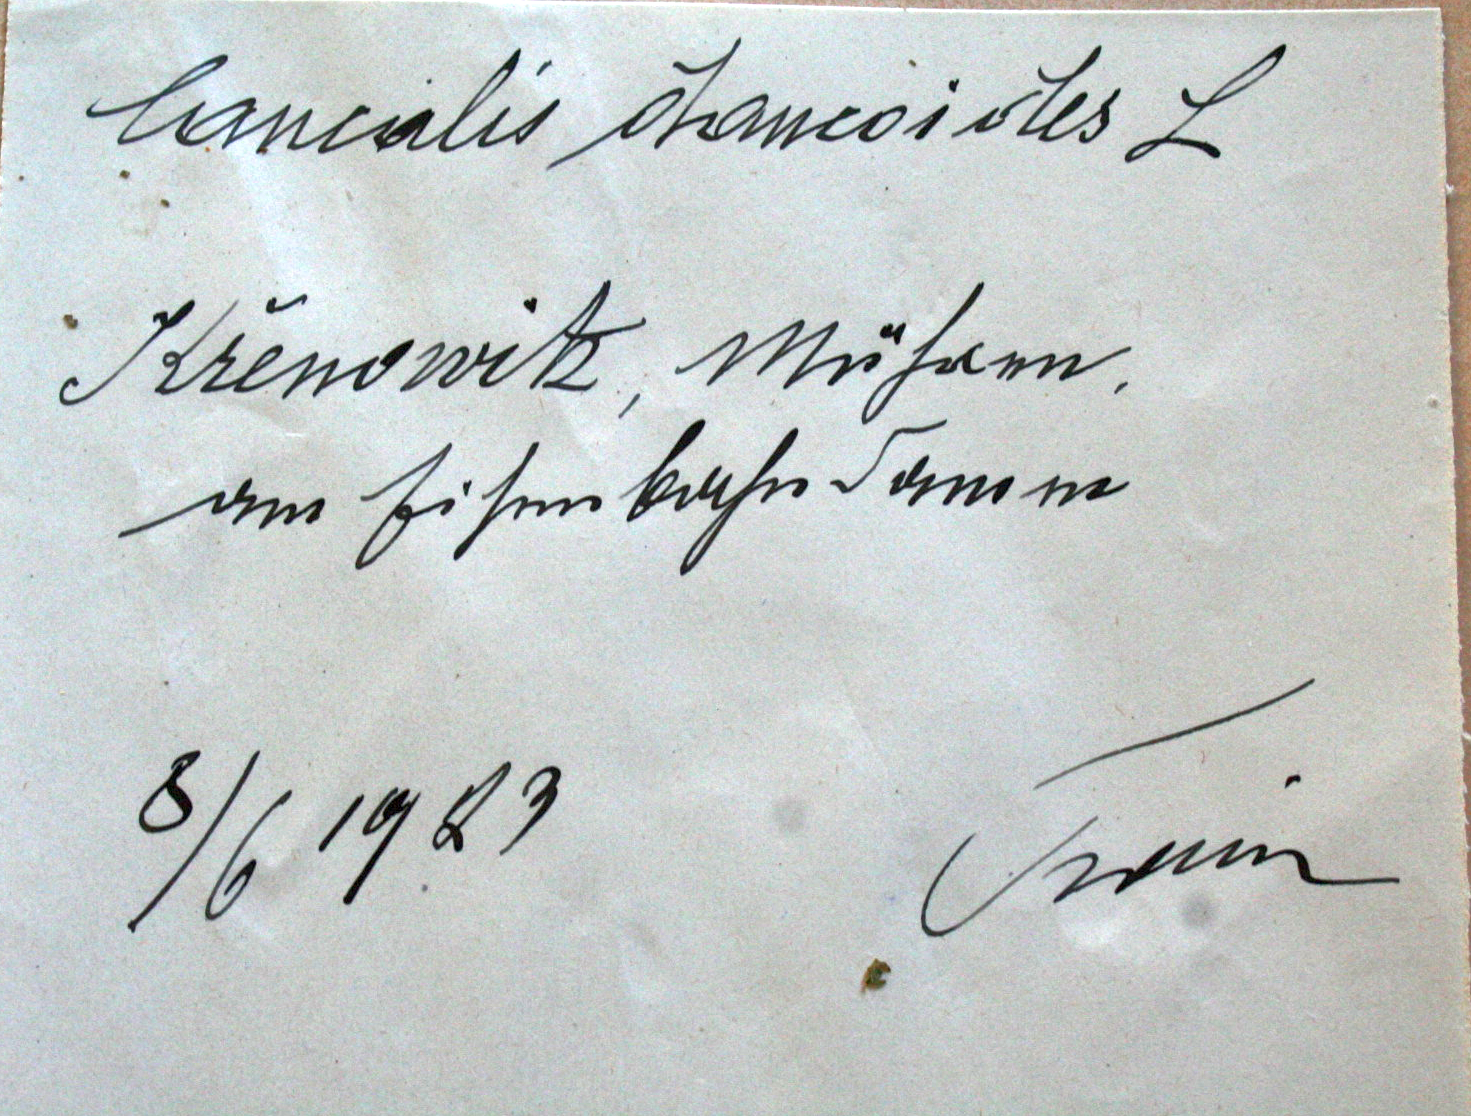 Caucalis daucoides L
Křenowitz, Mähren.
am Eisenbahndamm
8/6 1923